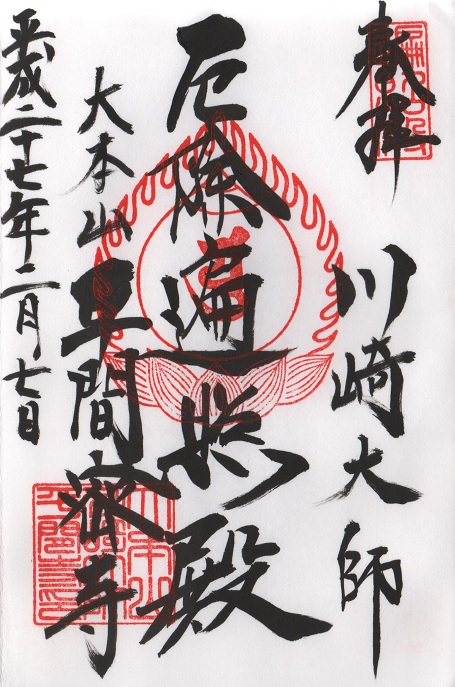 奉拝
川崎大師
厄除遍照殿
大本山
平間寺
平成二十七年二月七日